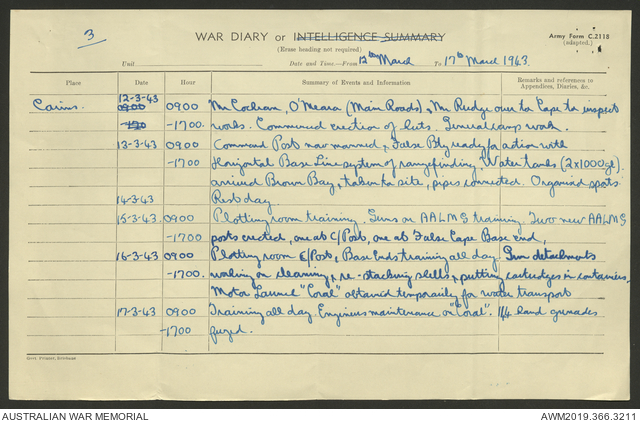 3
WAR DIARY or INTELLIGENCE SUMMARY
(Erase heading not required)
Army Form C.2118
(adapted.)
Unit
Date and Time—From 12th March To 17th March 1943.
Place Date Hour Summary of Events and Information Remarks and references to Appendices, Diaries, &c.
Cairns. 12-3-43 0900 Mr Cochran, O'Meara (Main Roads), Mr Rudge over to Cape to inspect
-1700. works. Commenced erection of huts. General camp work.
13-3-43 0900 Command Post now manned, & False Bty ready for action with
-1700 Horizontal Base Line system of rangefinding. Water tanks (2x1000gl)
arrived Brown Bay, taken to site, pipes connected. Organised sports
14-3-43 Rest day.
15-3-43 0900 Plotting room training. Guns on AALMG training. Two new AALMG
-1700 posts erected, one at C/Post, one at False Cape Base end,
16-3-43 0900 Plotting room C/Post, Base Ends training all day. Gun detachments
-1700. working on cleaning, & re-stacking shells, & putting cartridges in containers.
Motor Launch "Coral" obtained temporarily for water transport
17-3-43 0900 Training all day. Engineers maintenance on "Coral". 144 hand grenades
-1700 fuzed.
AUSTRALIAN WAR MEMORIAL
AWM2019.366.3211